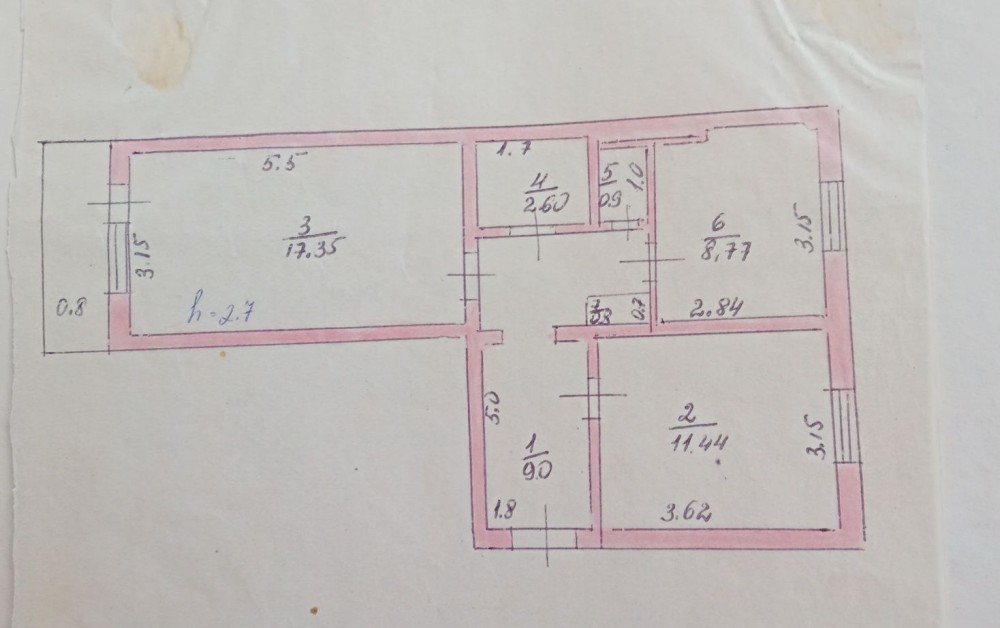 5.5
3
17.35
3.15
0.8
h=2.7
1.7
4
2.60
5
0.9
1.0
6
8,77
3.15
2.84
7
0.8
0.7
5.0
1
9.0
1.8
2
11.44
3.15
3.62